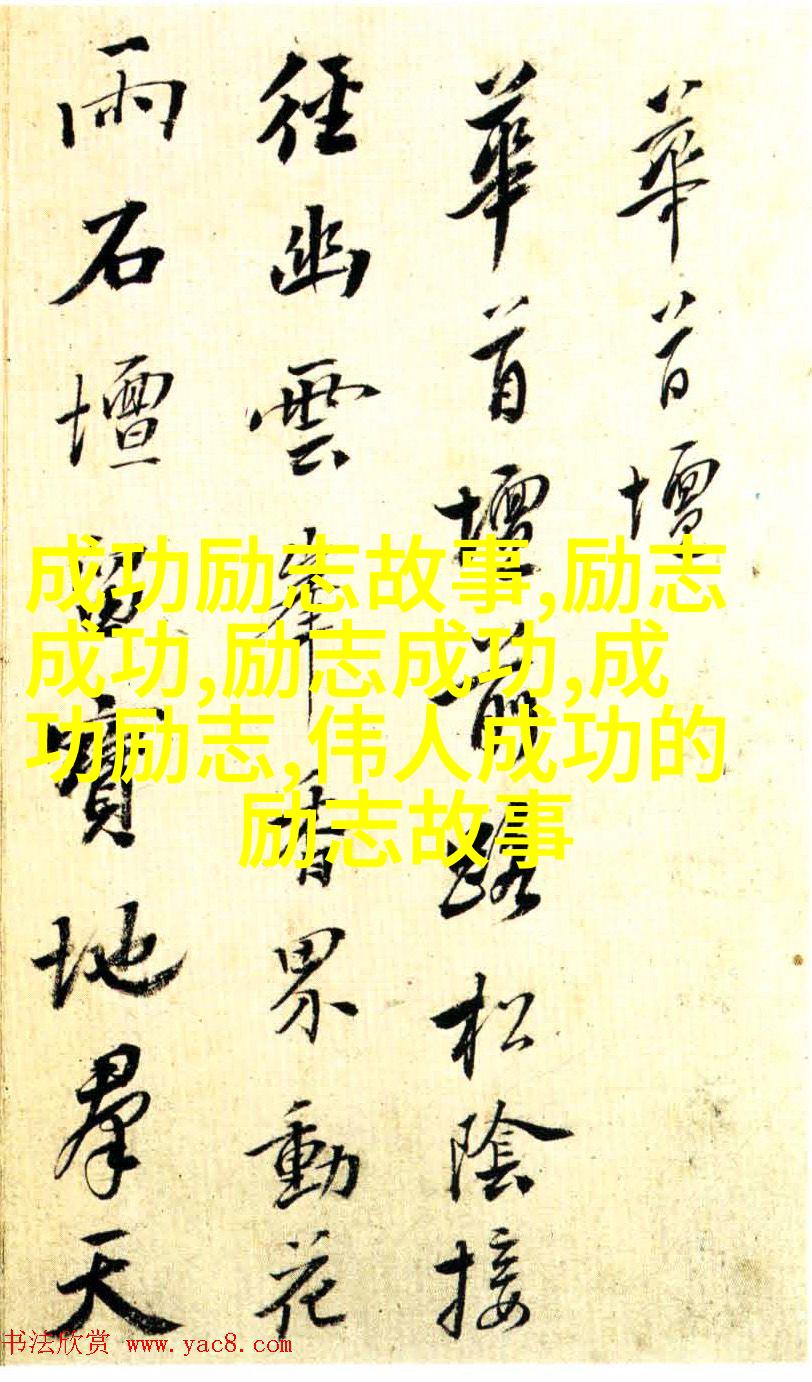 華首壇
華首壇前路松陰接
徑幽雲峯香界動花
雨石壇留寶地羣天
成功励志故事,励志
成功,励志成功,成
功励志,伟人成功的
励志故事
书法欣赏 www.yac8.com